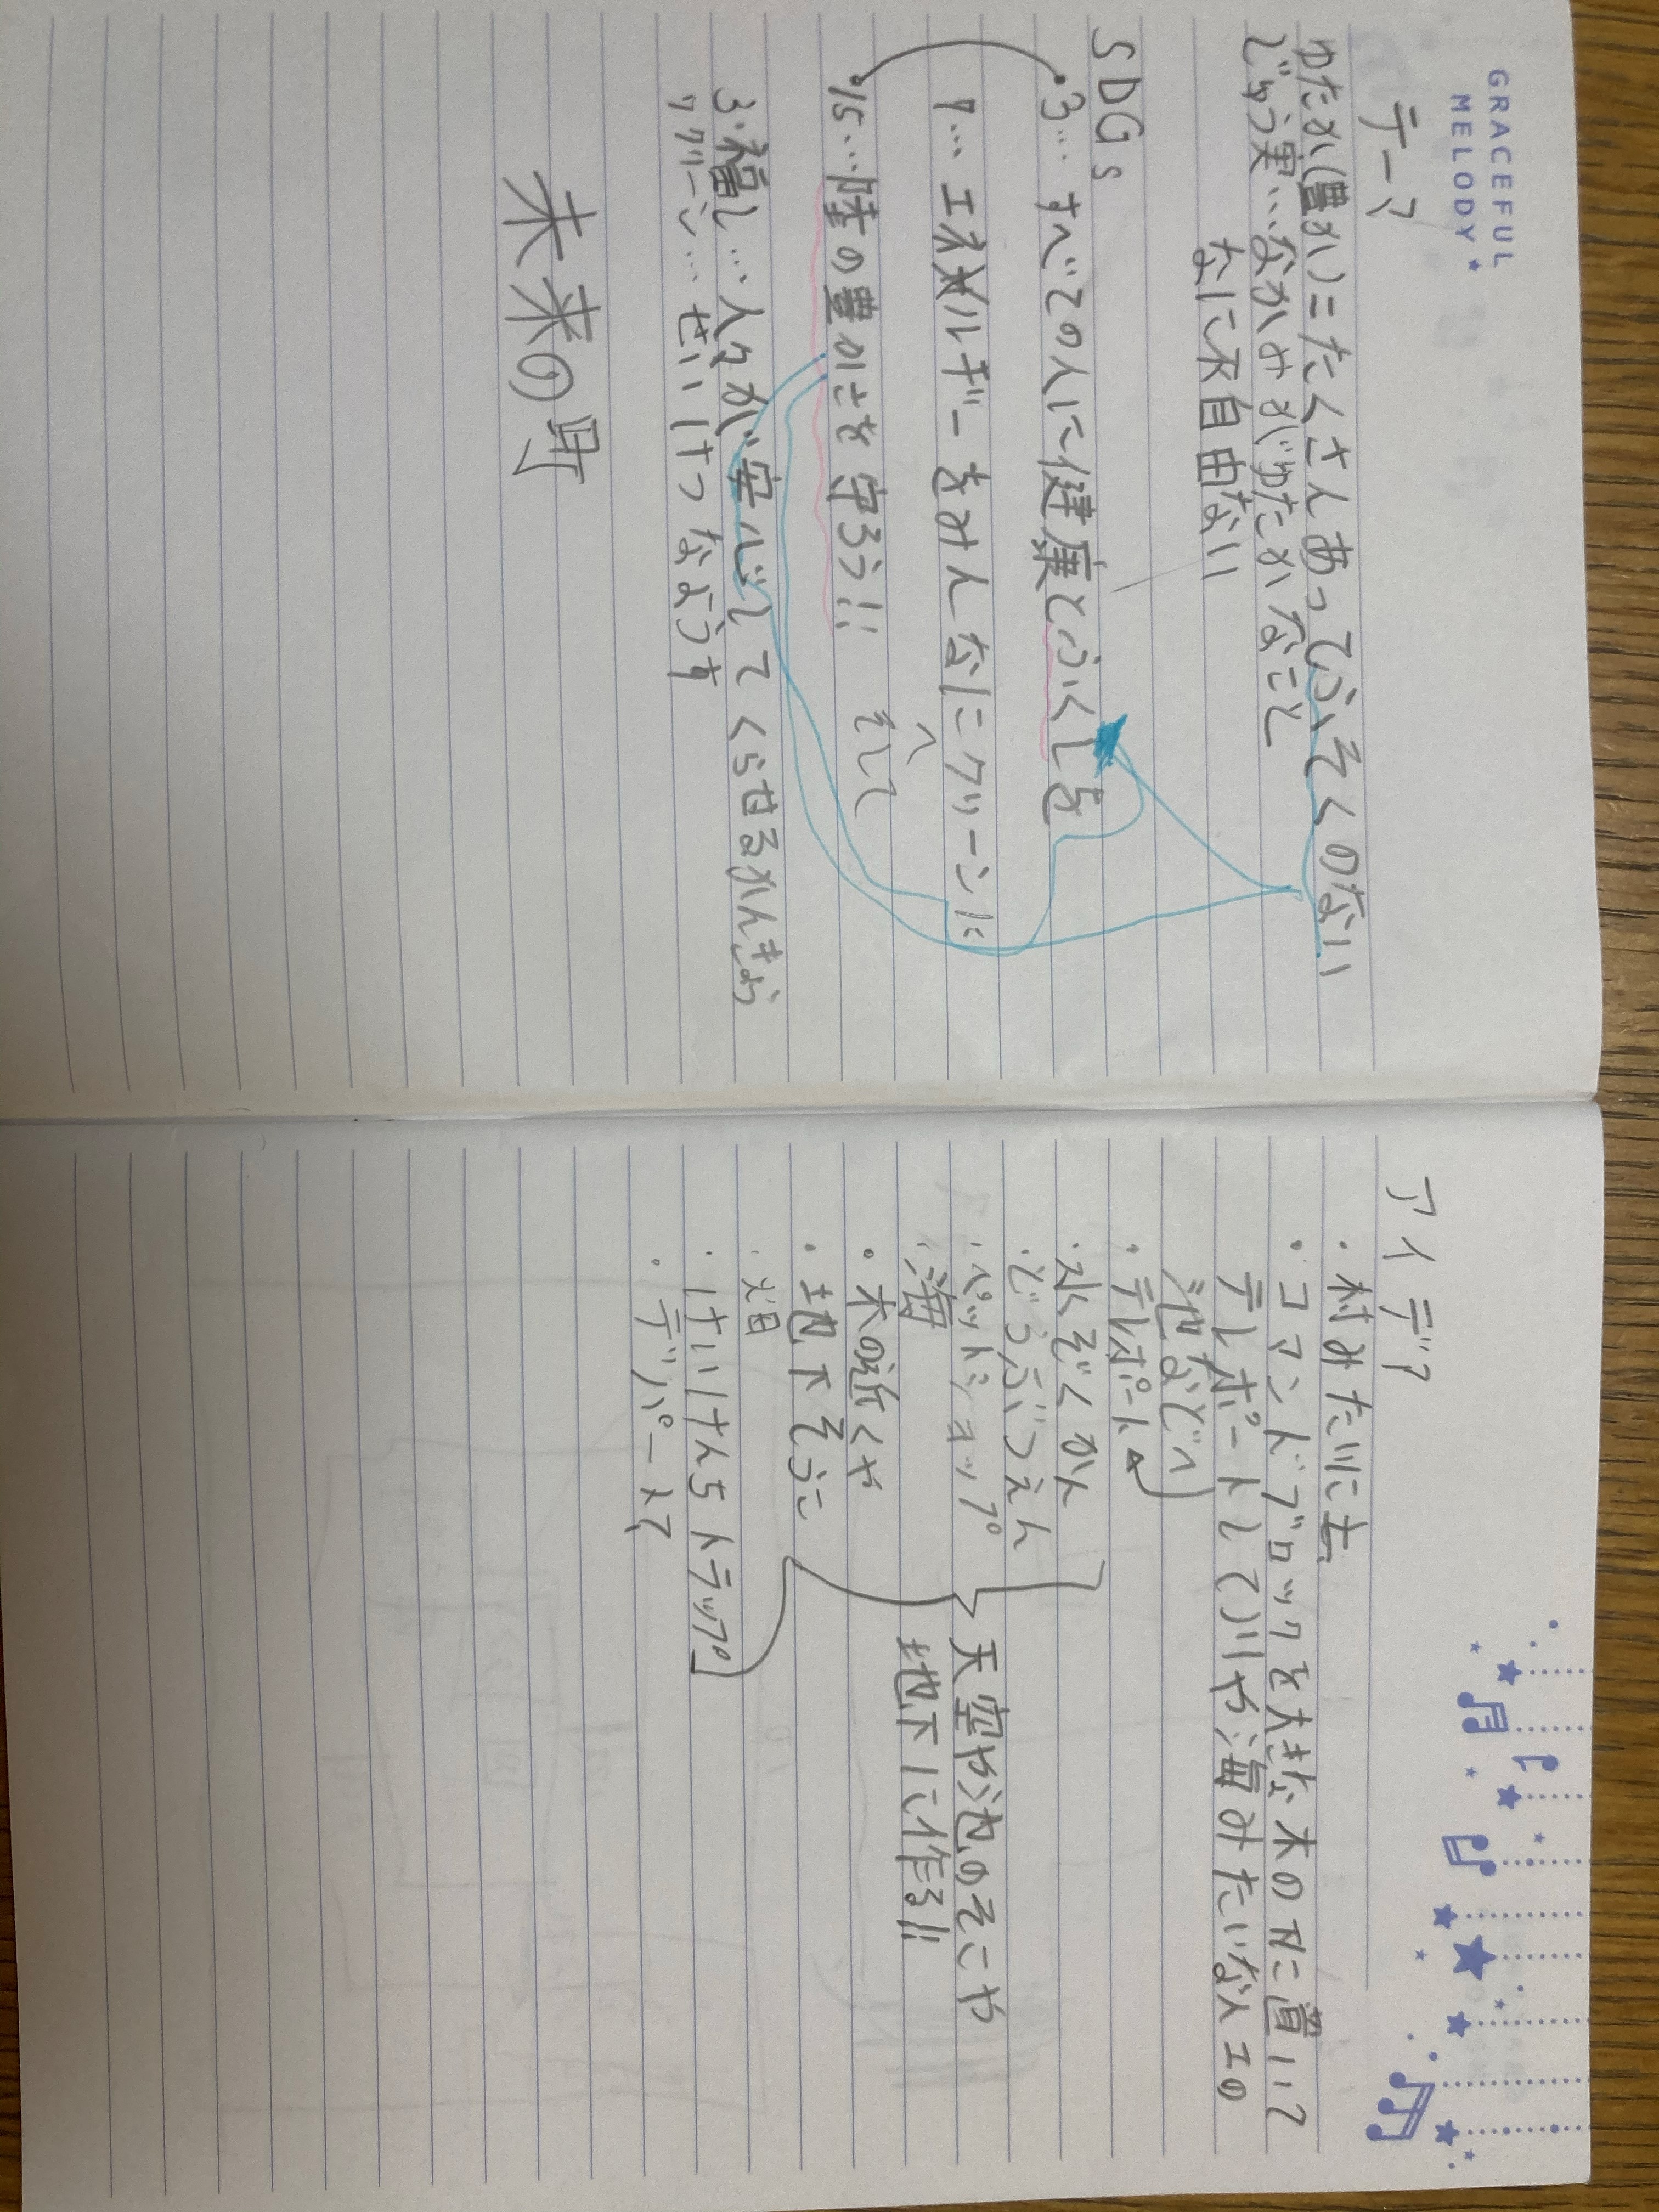 GRACEFUL
MELODY
テーマ
ゆたか(豊か)=たくさんあってふそくのない
じゅう実…なかみがゆたかなこと
なに不自由ない
SDGs
・3…すべての人に健康とふくしを
7…エネルギーをみんなにクリーンに
へ
そして
・15…陸の豊かさを守ろう!!
3・福し…人々が安心してくらせるかんきょう
7クリーン…せいけつなようす
未来の町
アイデア
・村みたいに
・コマンドブロックを大きな木の下に置いて
テレポートして川や海みたいな人工の
池などへ
・テレポート
・水ぞくかん
・どうぶつえん
・ペットショップ
・海
天空や池のそこや
地下に作る!!
・木の近くや
・地下そうこ
・畑
・けいけんちトラップ
・デパート